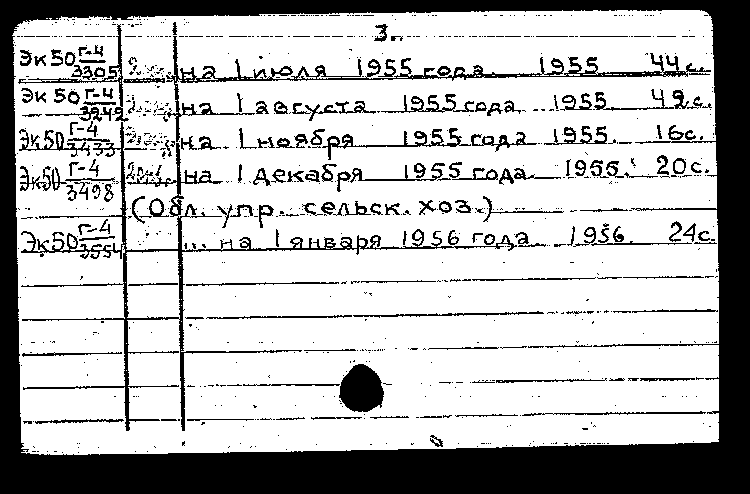 3..
Эк50 Г-4/3305 на 1 июля 1955 года. 1955 44с.
Эк 50 Г-4/3242 на 1 августа 1955 года 1955. 42.с.
Эк50 Г-4/3433 на 1 ноября 1955 года 1955. 16с.
Эк50 Г-4/3498 на 1 декабря 1955 года. 1955. 20с.
(Обл. упр. сельск. хоз.)
Эк50 Г-4/3554 ... на 1 января 1956 года 1956. 24с.